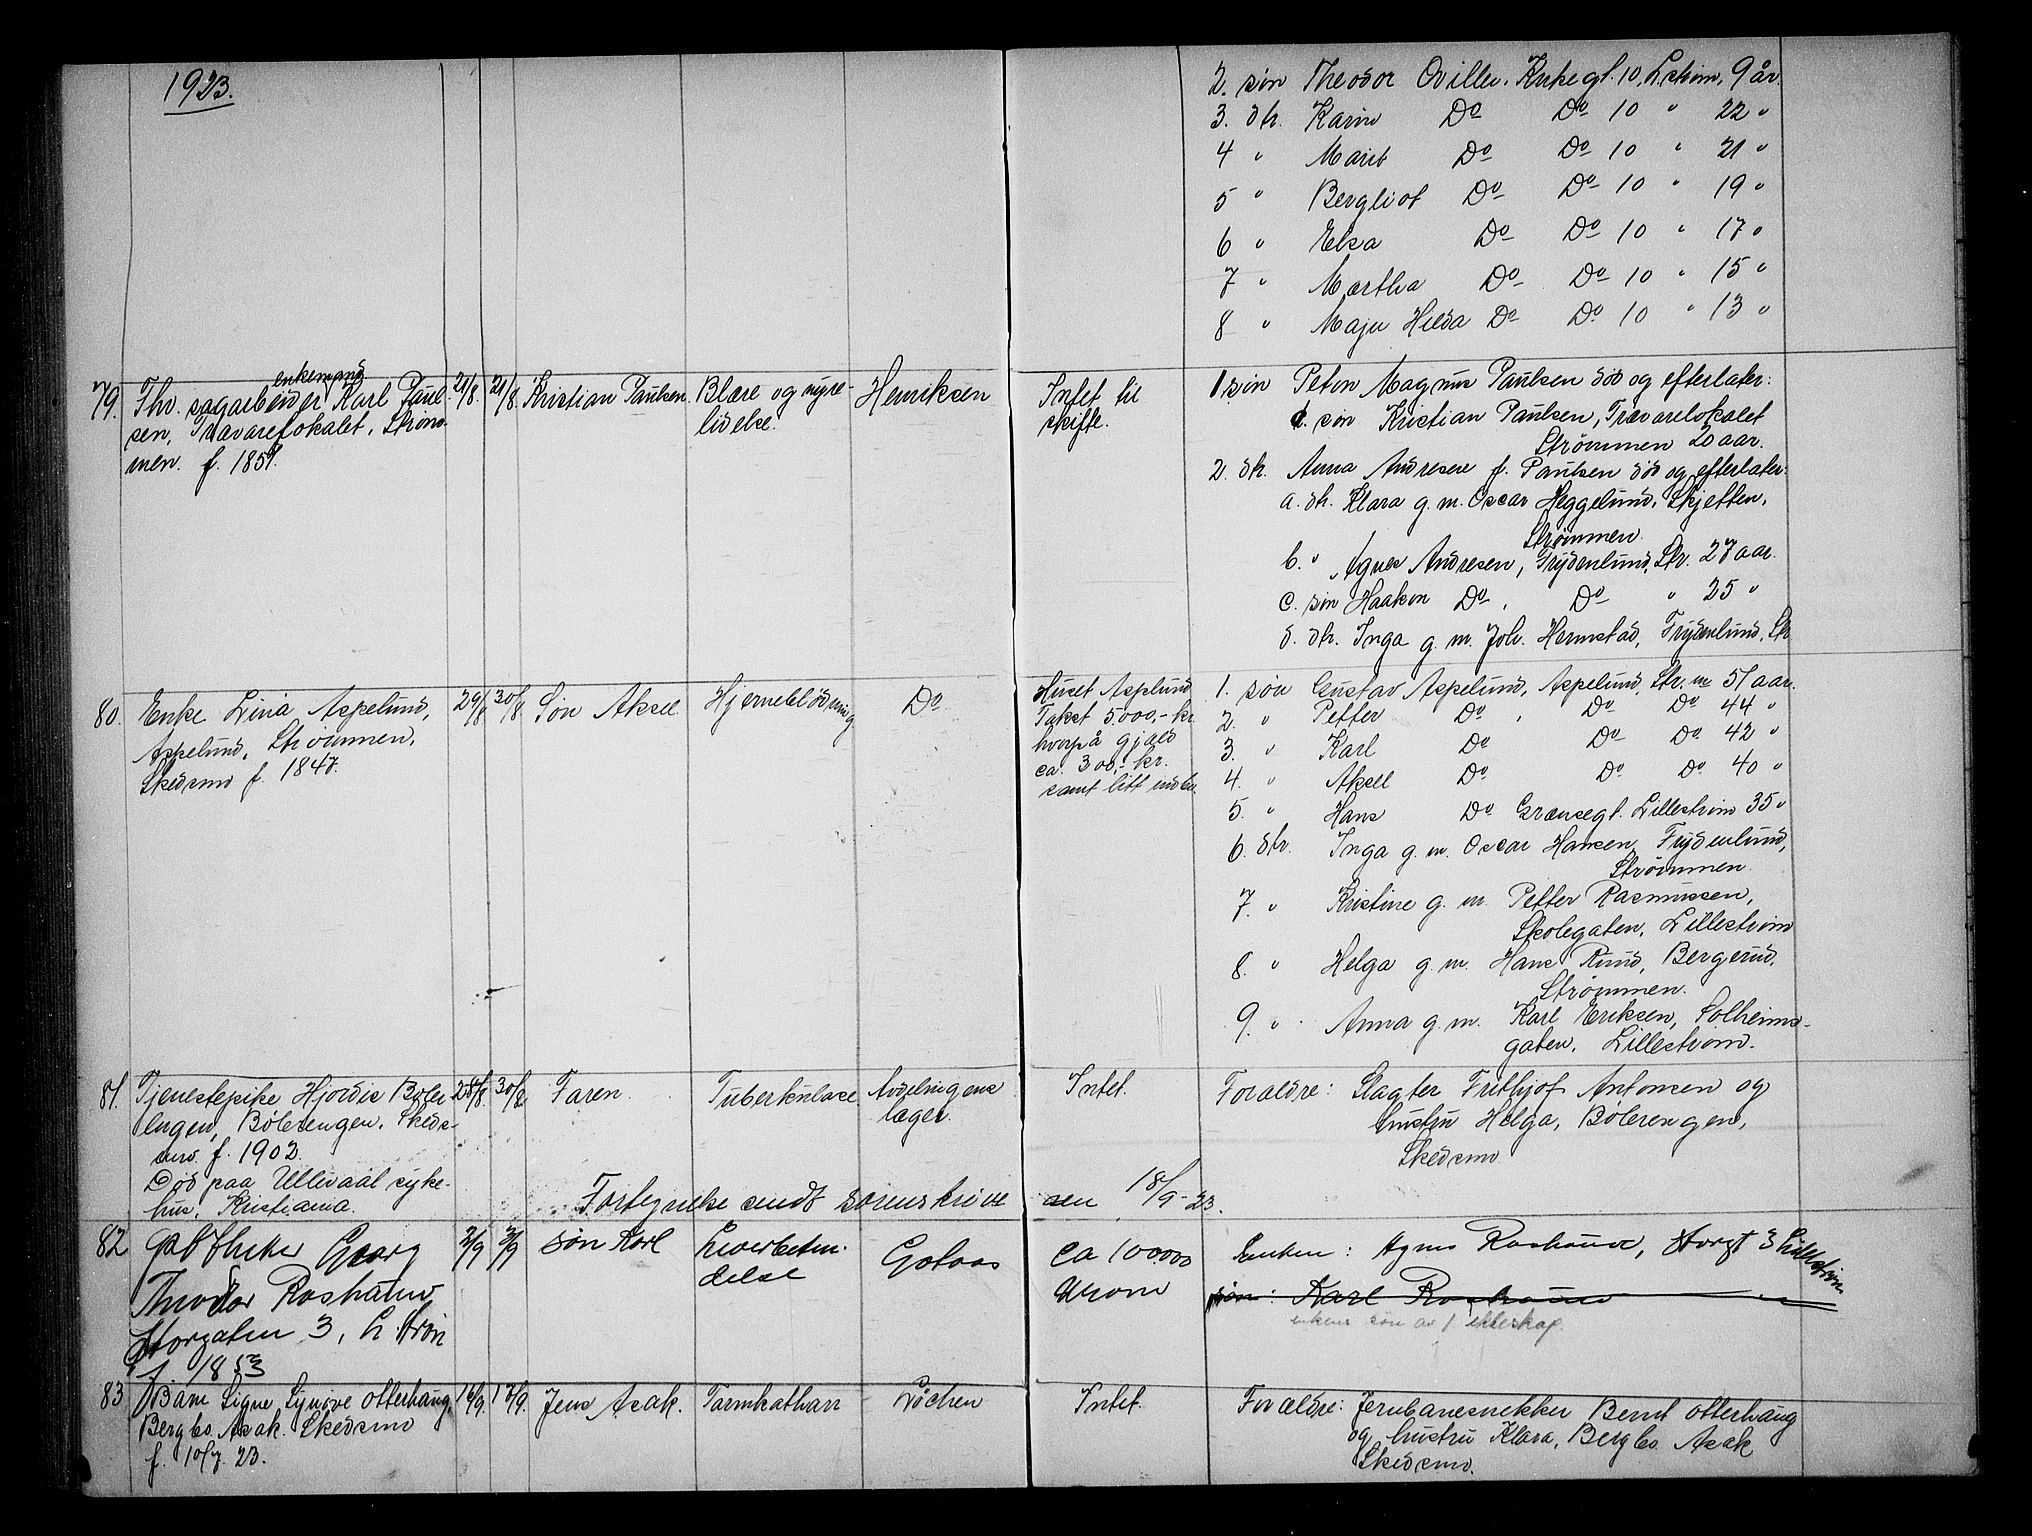 1923.
2. søn Theodor Oviller. Kirkegt. 10, L.strøm, 9 år
3. dtr. Karin Do Do 10 " 22 "
4 " Marit Do Do 10 " 21 "
5 " Bergliot Do Do 10 " 19 "
6 " Elsa Do Do 10 " 17 "
7 " Martha Do Do 10 " 15 "
8 " Maju Hilda Do Do 10 " 13 "
79. Fhv. sagarbeider enkemand Karl Paul-
sen, Trævarelokalet, Strøm-
men. f. 1851.
21/8. 21/8. Kristian Paulsen
Blære og nyre-
lidelse.
Henriksen
Intet til
skifte.
1 søn Peton Magnus Paulsen død og efterlater:
a. søn Kristian Paulsen, Trævarelokalet
Strømmen 20 aar.
2. dtr. Anna Andresen f. Paulsen død og efterlater:
a. dtr. Klara g. m. Oscar Heggelund, Skjetten,
Strømmen.
b. " Agnes Andresen, Frydenlund, Str. 27 aar.
c. søn Haakon Do , Do " 25 "
d. dtr. Inga g. m. Joh. Hermstad, Frydenlund, Str
80. Enke Lina Aspelund,
Aspelund, Strømmen,
Skedsmo f. 1847.
29/8 30/8. Søn Aksel
Hjerneblødning
Do
Huset Aspelund
Takst 5000,- kr.
hvorpå gjæld
ca. 300,- kr.
samt litt indbo.
1. søn Gustav Aspelund, Aspelund, Str.m 51 aar.
2. " Petter Do , Do Do 44 "
3. " Karl Do Do Do 42 "
4. " Aksel Do Do Do 40 "
5. " Hans Do Grænsegt. Lillestrøm 35 "
6. dtr. Inga g. m. Oscar Hansen, Frydenlund,
Strømmen.
7. " Kristine g. m. Petter Rasmussen,
Skolegaten, Lillestrøm
8. " Helga g. m. Hans Ruud, Bergerud,
Strømmen.
9. " Anna g. m. Karl Eriksen, Solheims-
gaten, Lillestrøm.
81. Tjenestepike Hjordis Bøler-
engen, Bølerengen, Skeds-
mo. f. 1902.
Død paa Ullevaal syke-
hus, Kristiania.
28/8 30/8 Faren
Tuberkulose
Avdelingens
læger.
Intet.
Forældre: Slagter Frithjof Antonsen og
hustru Helga, Bølerengen,
Skedsmo
Fortegnelse sendt sorenskrive
ren 18/9-23.
82 Georg
Theodor Roshauw
Storgaten 3, L.strøm
f. 1853
2/9 3/9 søn Karl
Leverbeten-
delse
Gotaas
Ca 10000
Kroner
Enken: Agnes Roshauw, Storgt 3 Lillestrøm
søn: Karl Roshauw
enkens søn av 1 ekteskap.
83 Barn Signe Synøve Otterhaug,
Bergbo. Asak. Skedsmo
f. 10/7. 23.
16/9. 17/9. Jens Asak.
Tarmkatharr
Løchen
Intet.
Forældre: Jernbanesnekker Bernt Otterhaug
og hustru Klara, Bergbo. Asak
Skedsmo.